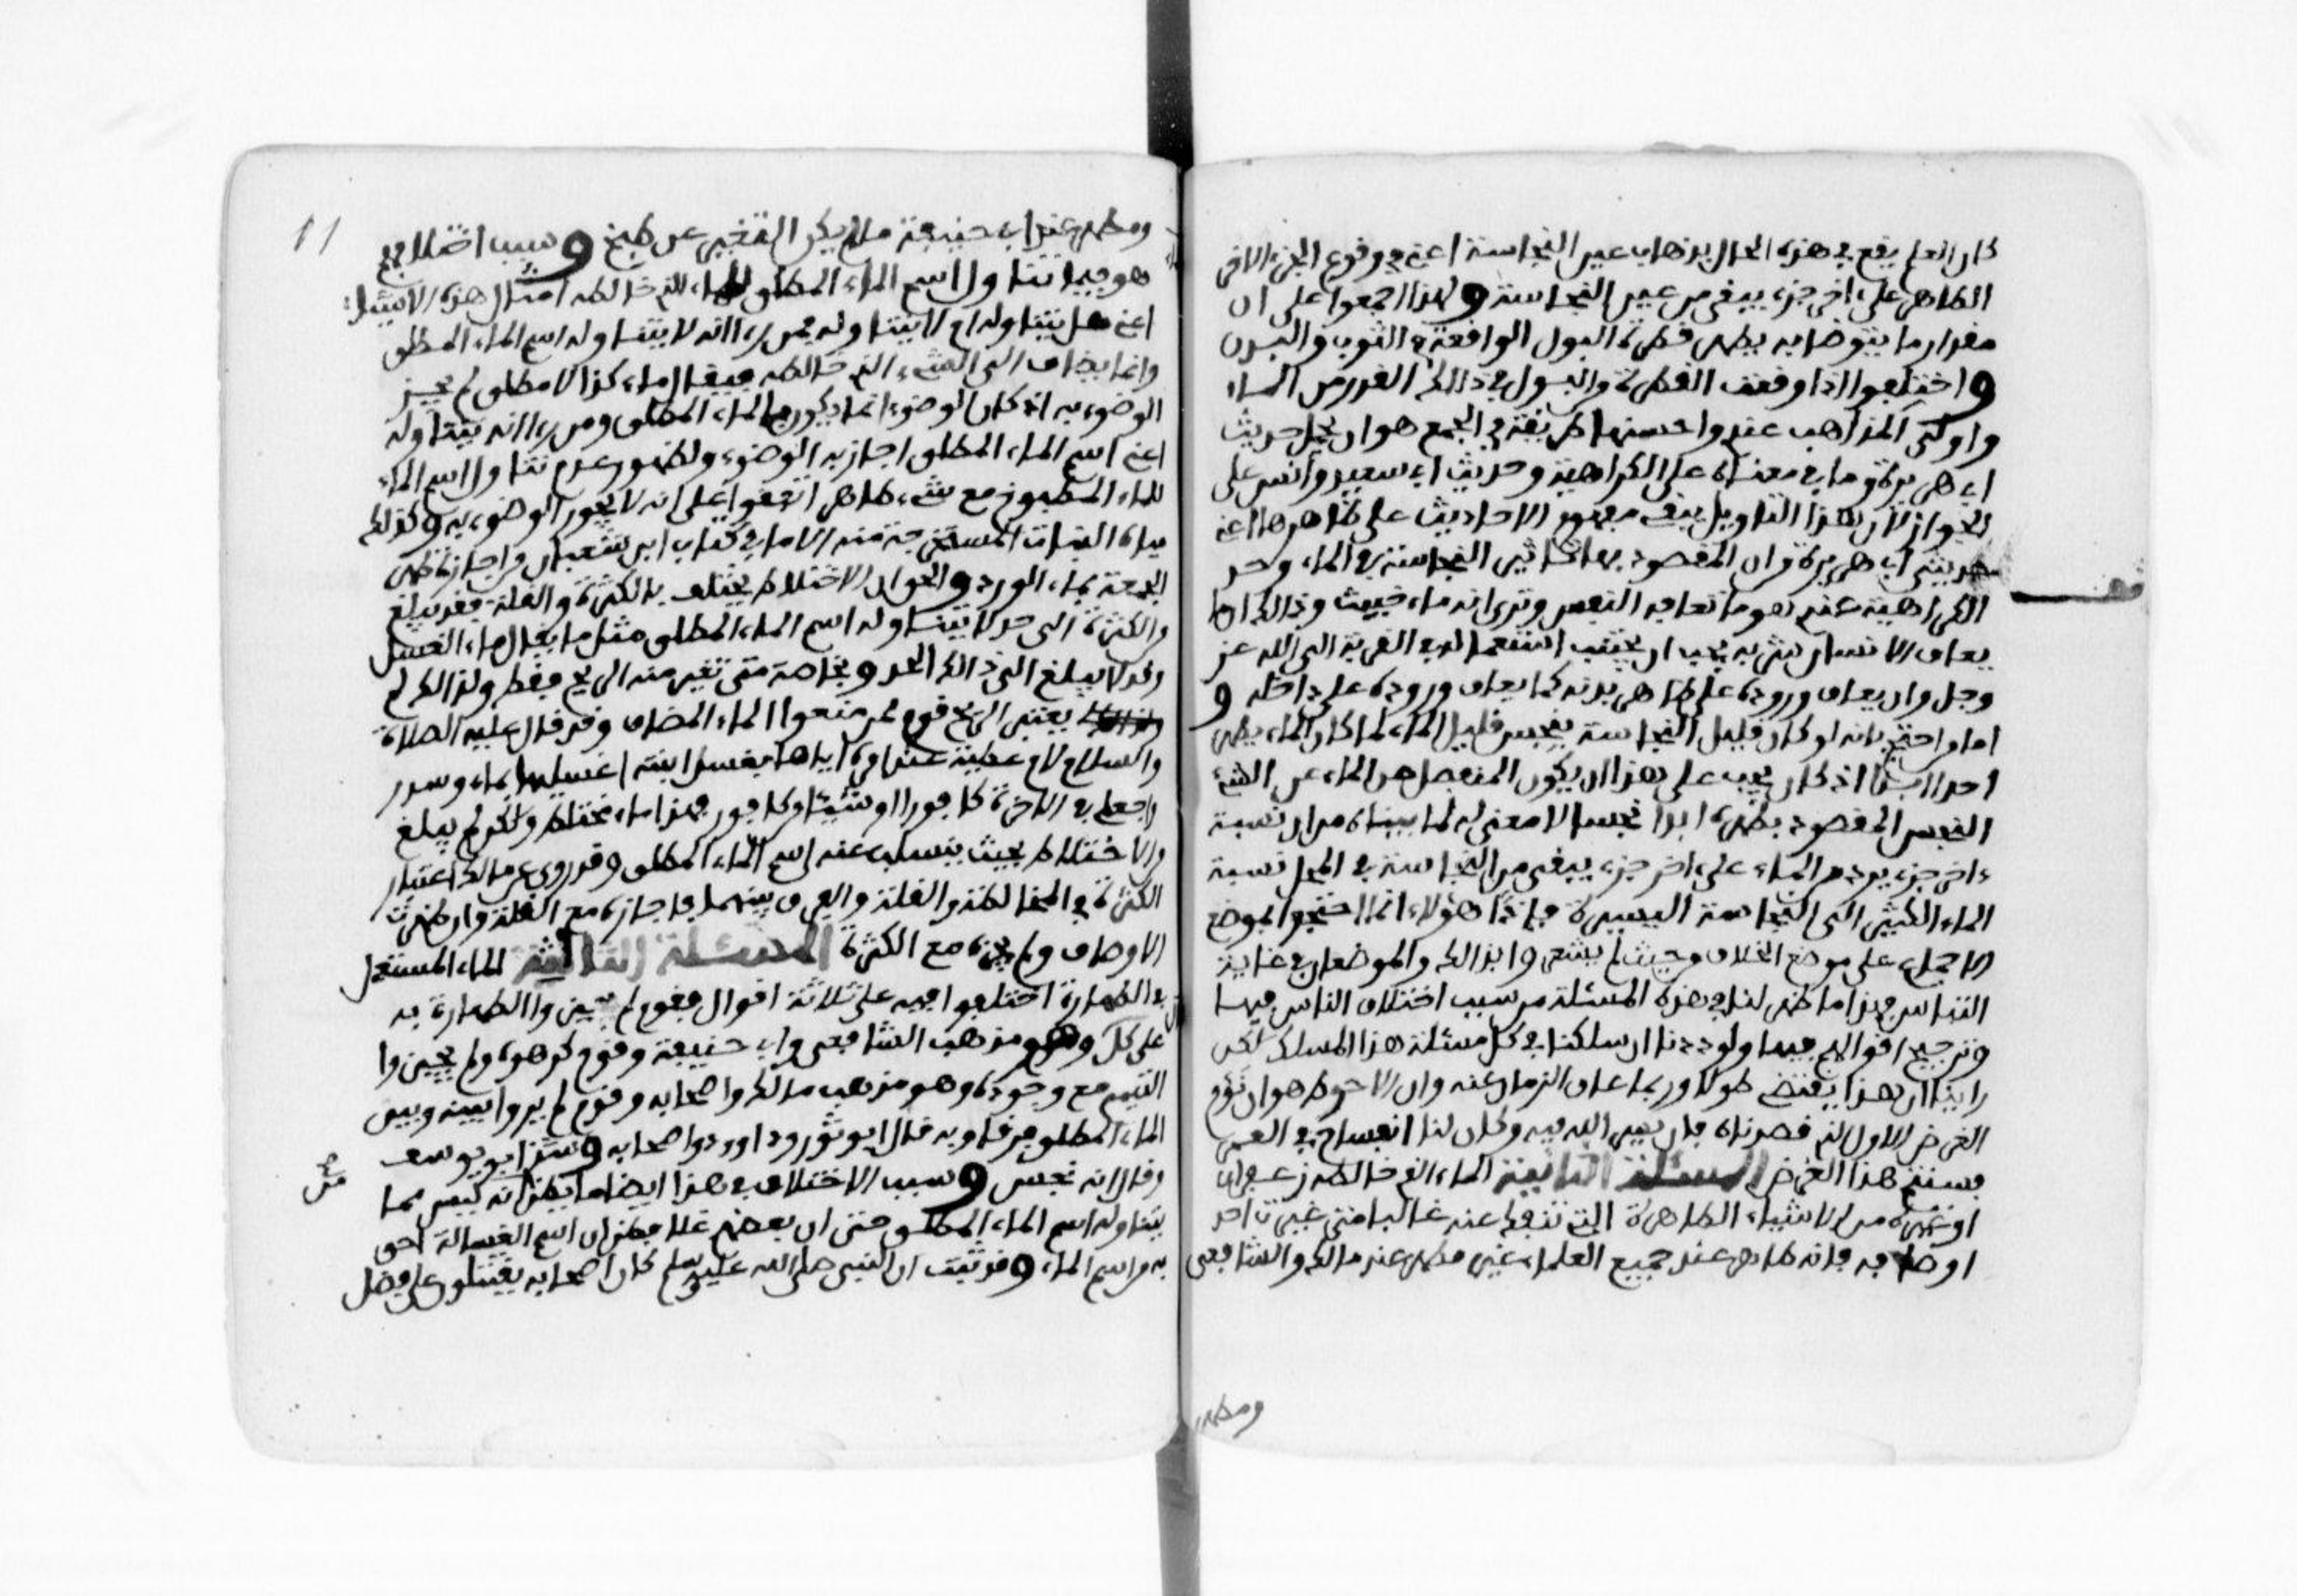 كان العلم يقع في هذه الحال بذهاب عين النجاسة اعني في وقوع الجزء الاخر
الطاهر على اخر جزء يبقى من عين النجاسة ولهذا اجمعوا على ان
مقدار ما يتوضا به يطهر قطرة البول الواقعة في الثوب والبدن
واختلفوا اذا وقعت القطرة من البول في ذلك القدر من الماء
واولى المذاهب عندي واحسنها طريقة في الجمع هو ان يحمل حديث
ابي هريرة وما في معناه على الكراهية وحديث ابي سعيد وانس على
الجواز لان هذا التاويل يبقي مفهوم الاحاديث على ظاهرها اعني
حديثي ابي هريرة وان المقصود بها تاثير النجاسة في الماء وحد
الكراهية عندي هو ما تعافه النفس وترى انه ماء خبيث وذلك ان ما
يعاف الانسان شربه يجب ان يجتنب استعماله في القربة الى الله عز
وجل وان يعاف وروده على ظاهر بدنه كما يعاف وروده على داخله و
اما من احتج بانه لو كان قليل النجاسة ينجس قليل الماء لما كان الماء يطهر
احدا ابدا اذ كان يجب على هذا ان يكون المنفصل من الماء عن الشيء
النجس المقصود بطهره ابدا نجسا لا معنى له لما بيناه من ان نسبة
ءاخر جزء يرد من الماء على اخر جزء يبقى من النجاسة في المحل نسبة
الماء الكثير الى النجاسة اليسيرة فاذا هؤلاء انما احتجوا بموضع
الاجماع على موضع الخلاف من حيث لم يشعروا بذلك والموضعان في غاية
التباين فهذا ما ظهر لنا في هذه المسئلة من سبب اختلاف الناس فيها
وترجيح اقوالهم فيها ولوددنا ان سلكنا في كل مسئلة هذا المسلك لكن
راينا ان هذا يقتضي طولا وربما عاق الزمان عنه وان الاحوط هو ان نؤم
الغرض الاول الذي قصدناه فان يسر الله فيه وكان لنا انفساح في العمر
فسنتم هذا الغرض المسئلة الثانية الماء الذي خالطه زعفران
او غيره من الاشياء الطاهرة التي تنفك عنه غالبا متى غيرت احد
اوصافه فانه طاهر عند جميع العلماء غير مطهر عند مالك والشافعي
ومطهر
11
ومطهر عند ابي حنيفة ما لم يكن التغيير عن طبخ وسبب اختلافهم
هو تناول اسم الماء المطلق للماء الذي خالطه امثال هذه الاشياء
اعني هل يتناوله ام لا يتناوله فمن راا انه لا يتناوله اسم الماء المطلق
وانما يضاف الى الشيء الذي خالطه فيقال ماء كذا لا مطلق لم يجز
الوضوء به اذ كان الوضوء انما يكون بالماء المطلق ومن راا انه يتناوله
اعني اسم الماء المطلق اجاز به الوضوء ولظهور عدم تناول اسم الماء
للماء المطبوخ مع شيء طاهر اتفقوا على انه لا يجوز الوضوء به وكذلك
مياه النبات المستخرجة منه الا ما في كتاب ابن شعبان من اجازة طهر
الجمعة بماء الورد والحق ان الاختلاط يختلف بالكثرة والقلة فقد يبلغ
والكثرة الى حد لا يتناوله اسم الماء المطلق مثل ما يقال ماء الغسل
وقد لا يبلغ الى ذلك الحد وبخاصة متى تغير منه الريح فقط ولذلك لم
يعتبر الريح قوم ممن منعوا الماء المضاف وقد قال عليه الصلاة
والسلام لام عطية عند امره اياها بغسل ابنته اغسلنها بماء وسدر
واجعلن في الاخرة كافورا او شيئا من كافور فهذا ماء مختلط ولكن لم يبلغ
والاختلاط بحيث ينسلب عنه اسم الماء المطلق وقد روي عن مالك اعتبار
الكثرة في المخالطة والقلة والفرق بينهما فاجازه مع القلة وان ظهرت
الاوصاف ولم يجزه مع الكثرة المسئلة الثالثة الماء المستعمل
في الطهارة اختلفوا فيه على ثلاثة اقوال فقوم لم يجيزوا الطهارة به
على كل وهو مذهب الشافعي وابي حنيفة وقوم كرهوه ولم يجيزوا
التيمم مع وجوده وهو مذهب مالك واصحابه وقوم لم يروا بينه وبين
الماء المطلق فرقا وبه قال ابو ثور وداوود واصحابه وشذ ابو يوسف
وقال انه نجس وسبب الاختلاف في هذا ايضا ما يظن انه ليس مما
يتناوله اسم الماء المطلق حتى ان بعضهم غلا فظن ان اسم الغسالة احق
به من اسم الماء وقد ثبت ان النبي صلى الله عليه وسلم كان اصحابه يقتتلون على فضل